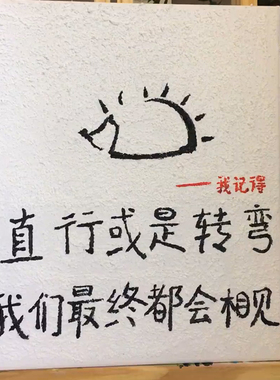 ——我记得
直行或是转弯
我们最终都会相见